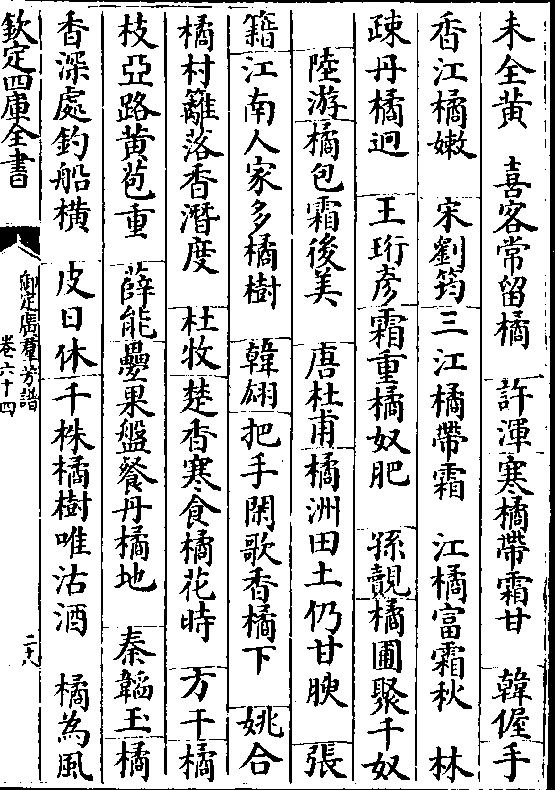 未全黄　喜客常留橘　許渾寒橘帶霜甘　韓偓手
香江橘嫰　宋劉筠三江橘帶霜　江橘富霜秋　林
疎丹橘迥　王珩彦霜重橘奴肥　孫覿橘圃聚千奴
陸游橘包霜後美　唐杜甫橘洲田土仍甘腴　張
籍江南人家多橘樹　韓翃把手閑歌香橘下　姚合
橘村籬落香潛度　杜牧楚香寒食橘花時　方干橘
枝亞路黄苞重　薛能疊果盤餐丹橘地　秦韜玉橘
香深處釣船横　皮日休千株橘樹唯沽酒　橘為風
欽定四庫全書
御定廣羣芳譜
卷六十四
二十八